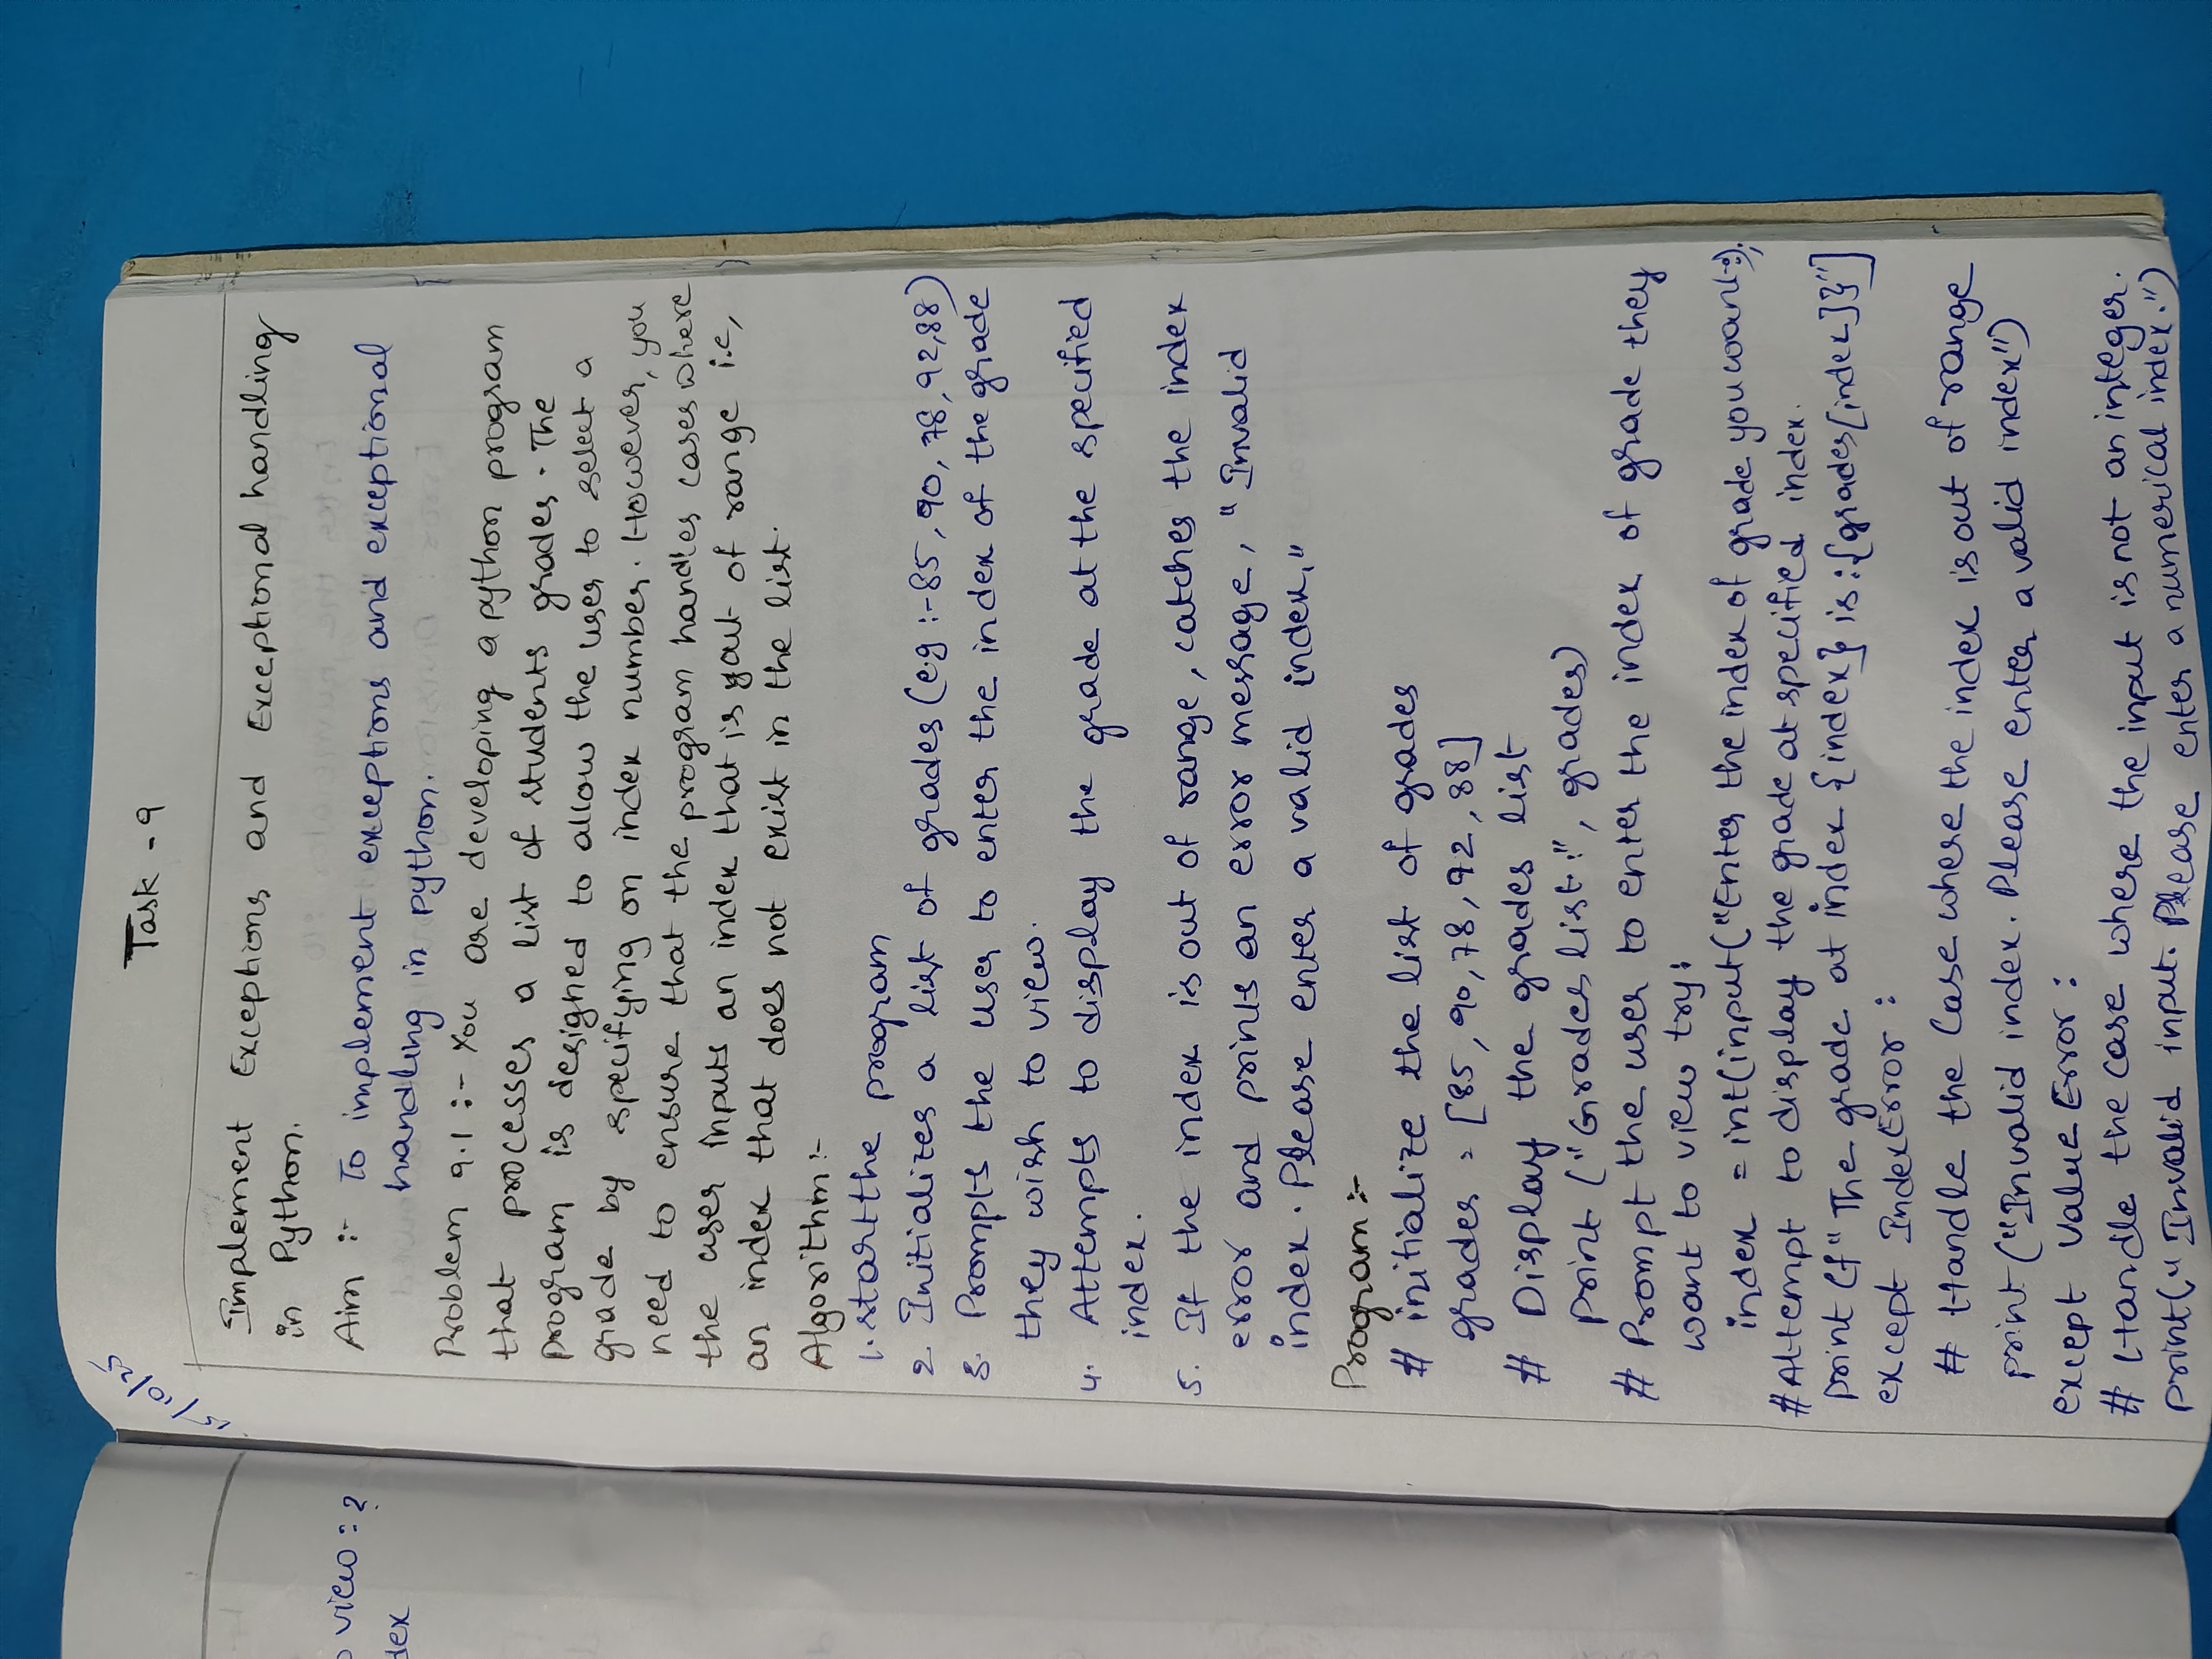 o view : 2
dex
15/10/25
Task - 9
Implement Exceptions and Exceptional handling
in Python.
Aim :- To implement exceptions and exceptional
handling in python.
Problem 9.1 :- You are developing a python program
that processes a list of students grades. The
program is designed to allow the user to select a
grade by specifying on index number. However, you
need to ensure that the program handles cases where
the user inputs an index that is out of range i.e,
an index that does not exist in the list.
Algorithm :-
1. start the program
2. Initializes a list of grades (e.g :- 85, 90, 78, 92, 88)
3. Prompts the user to enter the index of the grade
they wish to view.
4. Attempts to display the grade at the specified
index.
5. If the index is out of range, catches the index
error and prints an error message, "Invalid
index. Please enter a valid index."
Program :-
# initialize the list of grades
grades = [85, 90, 78, 92, 88]
# Display the grades list
print ("Grades list:", grades)
# Prompt the user to enter the index of grade they
want to view try:
index = int(input("Enter the index of grade you want:"
# Attempt to display the grade at specified index.
print (f" The grade at index {index} is : {grades[index]}"]
except IndexError :
# Handle the Case where the index is out of range
print ("Invalid index. Please enter a valid index")
except Value Error :
# Handle the case where the input is not an integer.
print(" Invalid input. Please enter a numerical index.")